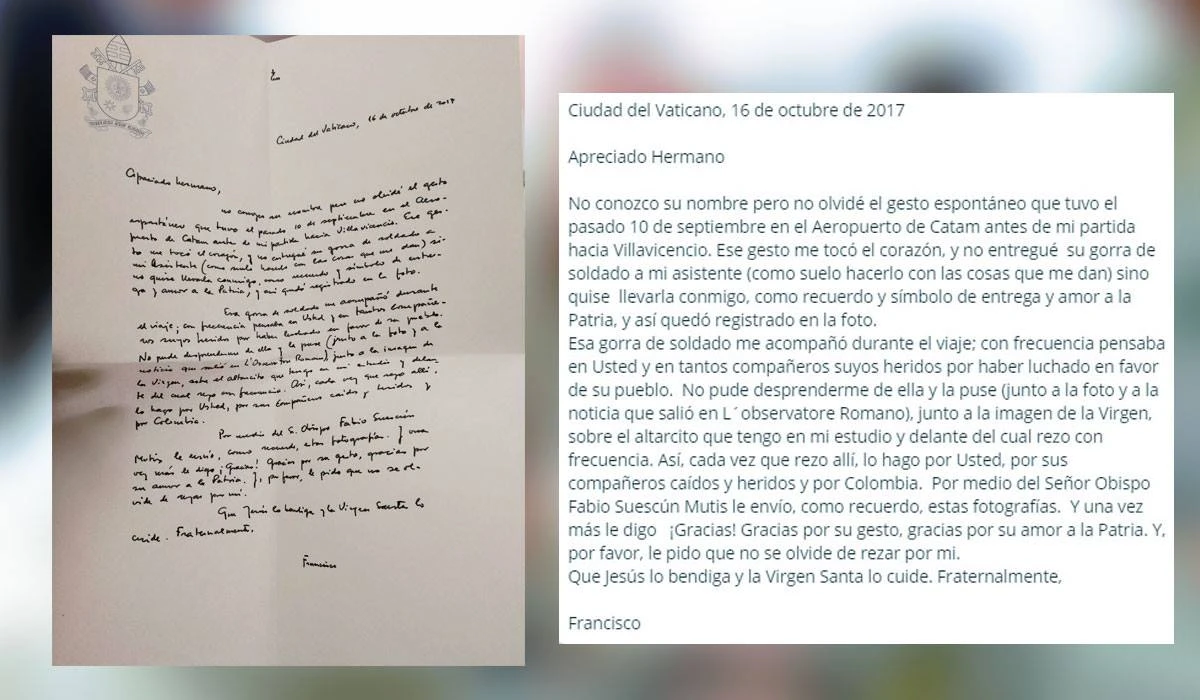 Ciudad del Vaticano, 16 de octubre de 2017
Apreciado hermano,
no conozco su nombre pero no olvidé el gesto
espontáneo que tuvo el pasado 10 de septiembre en el Aero-
puerto de Catam antes de mi partida hacia Villavicencio. Ese ges-
to me tocó el corazón, y no entregué su gorra de soldado a
mi Asistente (como suelo hacerlo con las cosas que me dan) si-
no quise llevarla conmigo, como recuerdo y símbolo de entre-
ga y amor a la Patria, y así quedó registrado en la foto.
Esa gorra de soldado me acompañó durante
el viaje; con frecuencia pensaba en Usted y en tantos compañe-
ros suyos heridos por haber luchado en favor de su pueblo.
No pude desprenderme de ella y la puse (junto a la foto y a la
noticia que salió en L'Osservatore Romano), junto a la imagen de
la Virgen, sobre el altarcito que tengo en mi estudio y delan-
te del cual rezo con frecuencia. Así, cada vez que rezo allí,
lo hago por Usted, por sus compañeros caídos y heridos y
por Colombia.
Por medio del S. Obispo Fabio Suescún
Mutis, le envío, como recuerdo, estas fotografías. Y una
vez más le digo ¡Gracias! Gracias por su gesto, gracias por
su amor a la Patria. Y, por favor, le pido que no se ol-
vide de rezar por mí.
Que Jesús lo bendiga y la Virgen Santa lo
cuide. Fraternalmente,
Francisco
Ciudad del Vaticano, 16 de octubre de 2017
Apreciado Hermano
No conozco su nombre pero no olvidé el gesto espontáneo que tuvo el
pasado 10 de septiembre en el Aeropuerto de Catam antes de mi partida
hacia Villavicencio. Ese gesto me tocó el corazón, y no entregué su gorra de
soldado a mi asistente (como suelo hacerlo con las cosas que me dan) sino
quise llevarla conmigo, como recuerdo y símbolo de entrega y amor a la
Patria, y así quedó registrado en la foto.
Esa gorra de soldado me acompañó durante el viaje; con frecuencia pensaba
en Usted y en tantos compañeros suyos heridos por haber luchado en favor
de su pueblo. No pude desprenderme de ella y la puse (junto a la foto y a la
noticia que salió en L´observatore Romano), junto a la imagen de la Virgen,
sobre el altarcito que tengo en mi estudio y delante del cual rezo con
frecuencia. Así, cada vez que rezo allí, lo hago por Usted, por sus
compañeros caídos y heridos y por Colombia. Por medio del Señor Obispo
Fabio Suescún Mutis le envío, como recuerdo, estas fotografías. Y una vez
más le digo ¡Gracias! Gracias por su gesto, gracias por su amor a la Patria. Y,
por favor, le pido que no se olvide de rezar por mi.
Que Jesús lo bendiga y la Virgen Santa lo cuide. Fraternalmente,
Francisco